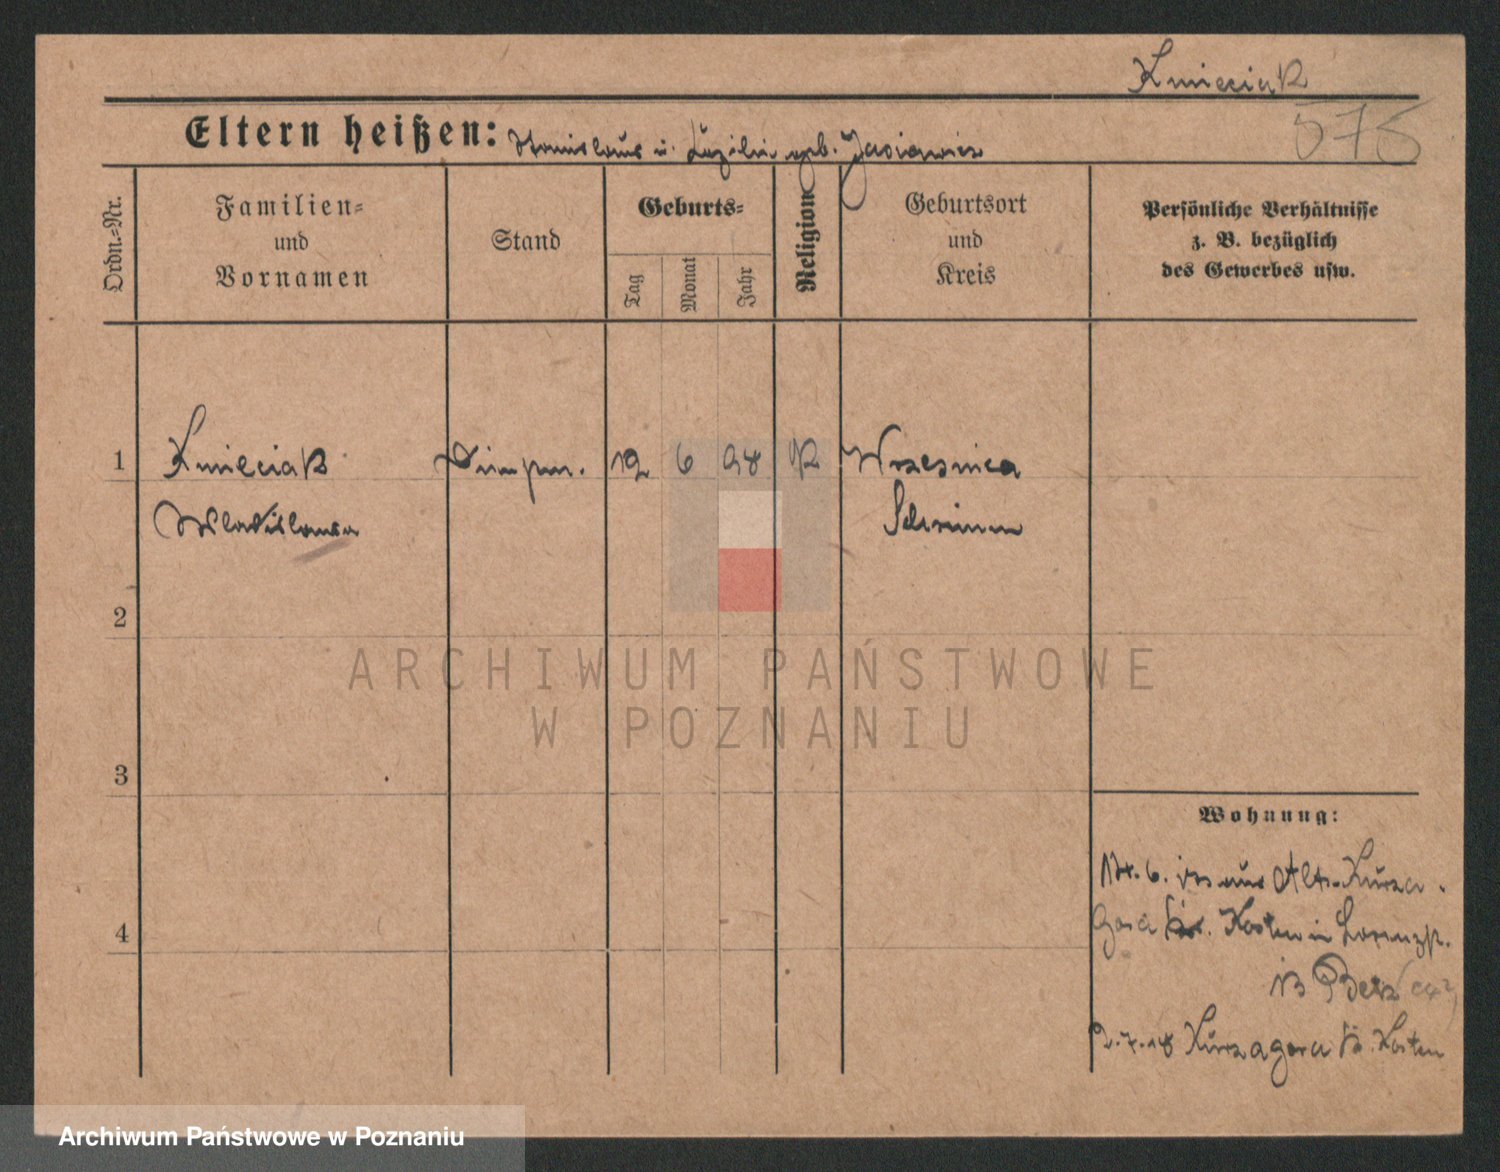 Kmieciak
575
Eltern heißen: Stanislaus u. geb.
Ordn.=Nr.
Familien=
und
Vornamen
Stand
Geburts=
Tag
Monat
Jahr
Religion
Geburtsort
und
Kreis
Persönliche Verhältnisse
z. B. bezüglich
des Gewerbes usw.
1 Kmieciak 12 6 98 K Wrzesnica
Wladislawa Schrimm
2
3
4
ARCHIWUM PAŃSTWOWE
W POZNANIU
Wohnung:
6. aus Alt-Kurza-
Gora Kr. Kosten in Lorenzstr.
2.7.18 Kurzagora Kr. Kosten
Archiwum Państwowe w Poznaniu